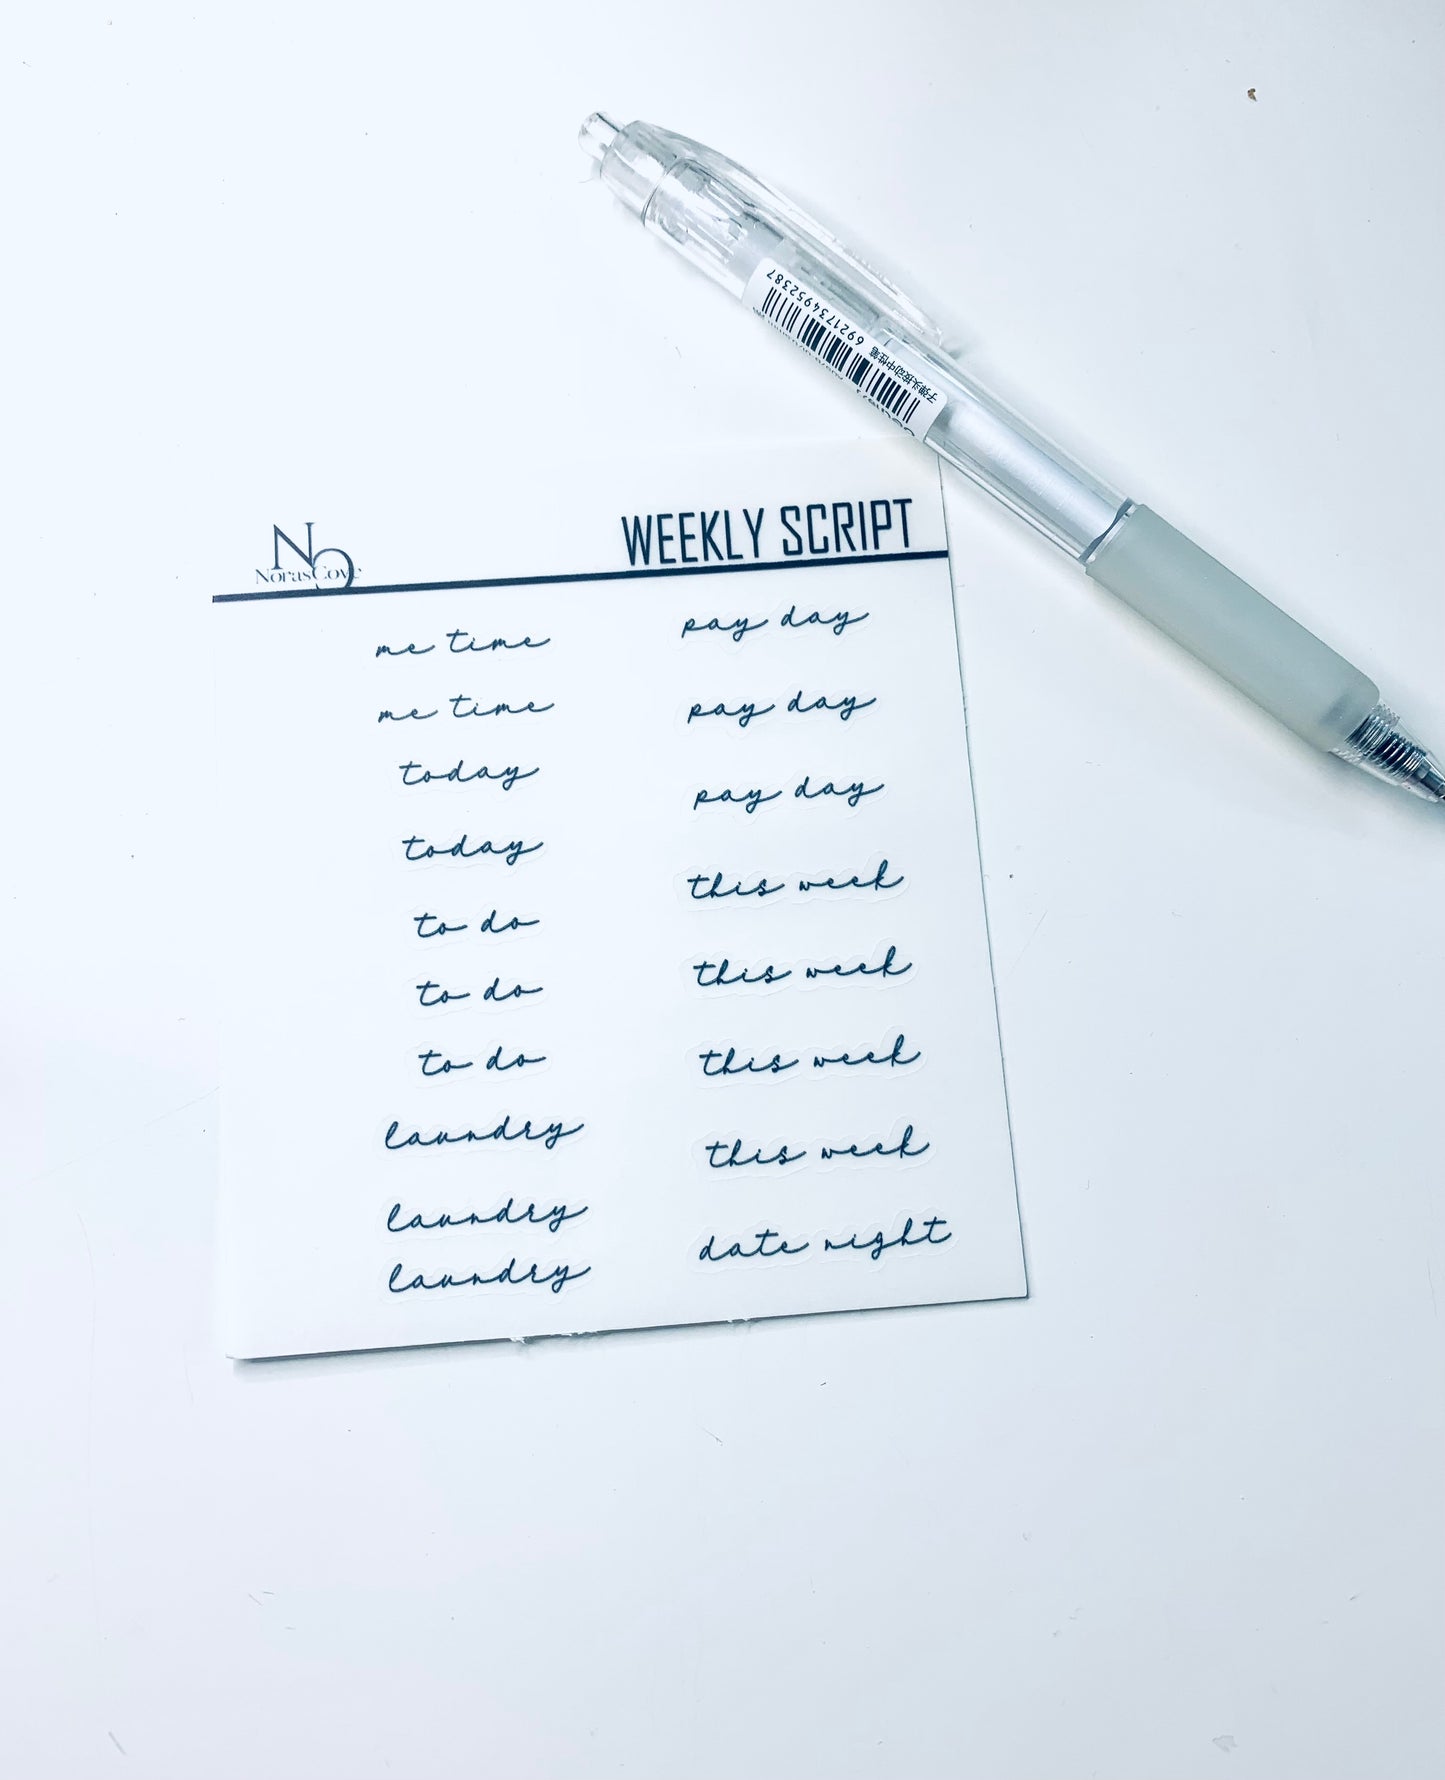 6921734952387
子弹头按动中性笔
WEEKLY SCRIPT
N
NorasCove
me time
me time
today
today
to do
to do
to do
laundry
laundry
laundry
pay day
pay day
pay day
this week
this week
this week
this week
date night